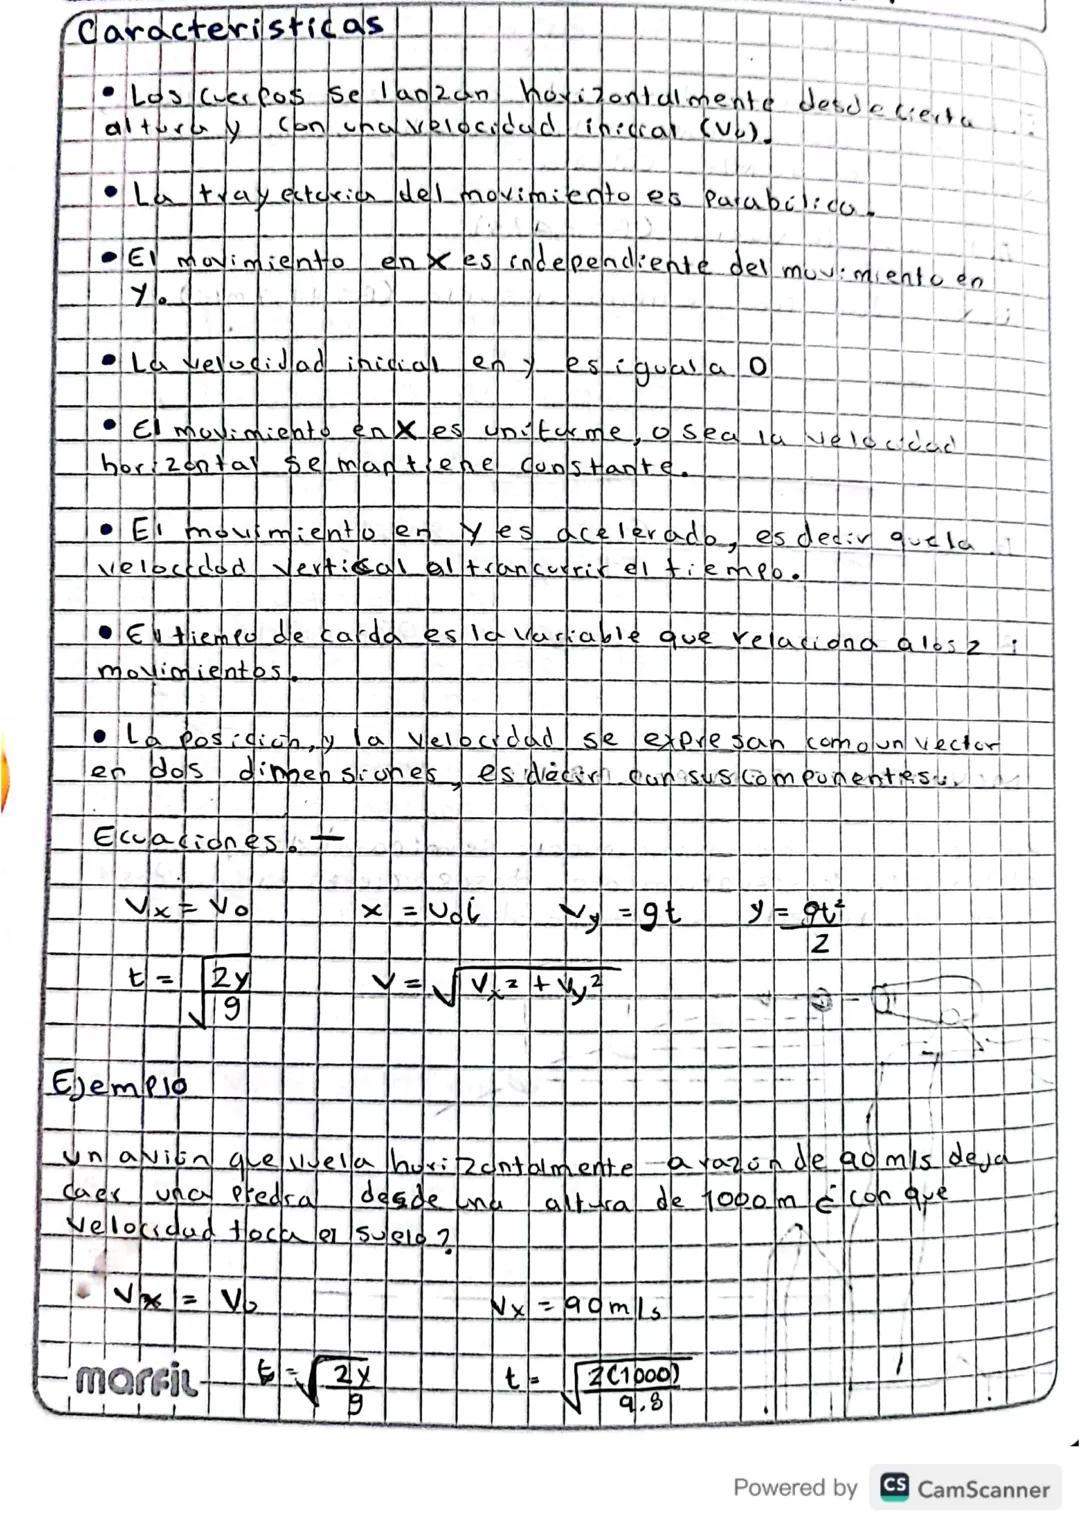 Caracteristicas
• Los cuerpos se lanzan horizontalmente desde cierta
altura y con una velocidad inicial (Vo).
• La trayectoria del movimiento es Parabólico.
• El movimiento en X es independiente del movimiento en
Y.
• La velocidad inicial en y es igual a 0
• El movimiento en X es uniforme, o sea la velocidad
horizontal se mantiene constante.
• El movimiento en Y es acelerado, es decir que la
velocidad vertical al trancurrir el tiempo.
• El tiempo de caida es la variable que relaciona a los 2
movimientos.
• La posición, y la velocidad se expresan como un vector
en dos dimensiones, es decir con sus componentes.
Ecuaciones. —
Vx = Vo x = Vot Vy = gt y = gt²/2
t = √(2y/g) V = √(Vx² + Vy²)
Ejemplo
Un avión que vuela horizontalmente a razón de 90 m/s deja
caer una piedra desde una altura de 1000 m ¿ con que
velocidad toca el suelo?
• Vx = Vo Vx = 90 m/s
marfil t = √(2y/g) t = √(2(1000)/9.8)
Powered by CS CamScanner